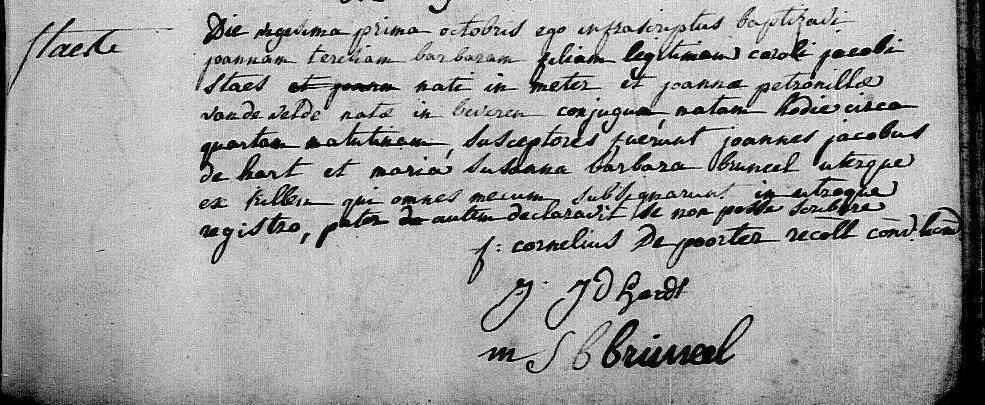 Staes
Die vigesima prima octobris ego infrascriptus baptizavi
joannam teresiam barbaram filiam legitimam caroli jacobi
staes et joann nati in meter et joannæ petronillæ
vande velde natæ in beveren conjugum, natam hodie circa
quartam matutinam, susceptores fuerunt joannes jacobus
de hart et maria susanna barbara bruneel uterque
ex killem qui omnes mecum subsignarunt in utroque
registro, pater de autem declaravit se non posse scribere
f: cornelius De poorter recoll
J. J D hardt
m S B bruneel